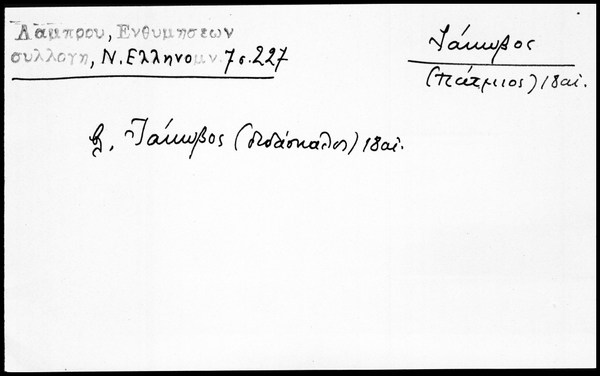 Λάμπρου, Ενθυμήσεων
συλλογή, Ν. Ελληνομν. 7 σ. 227
Ἰάκωβος
(πάτμιος) 18 αἰ.
βλ. Ἰάκωβος (διδάσκαλος) 18 αἰ.